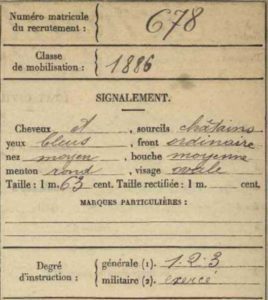 Numéro matricule
du recrutement : 678
Classe
de mobilisation : 1886
SIGNALEMENT.
Cheveux et , sourcils châtains
yeux bleus , front ordinaire
nez moyen , bouche moyenne
menton rond , visage ovale
Taille : 1 m. 63 cent. Taille rectifiée : 1 m. cent.
MARQUES PARTICULIÈRES :
Degré
d'instruction :
générale (1). 1.2.3
militaire (2). exercé